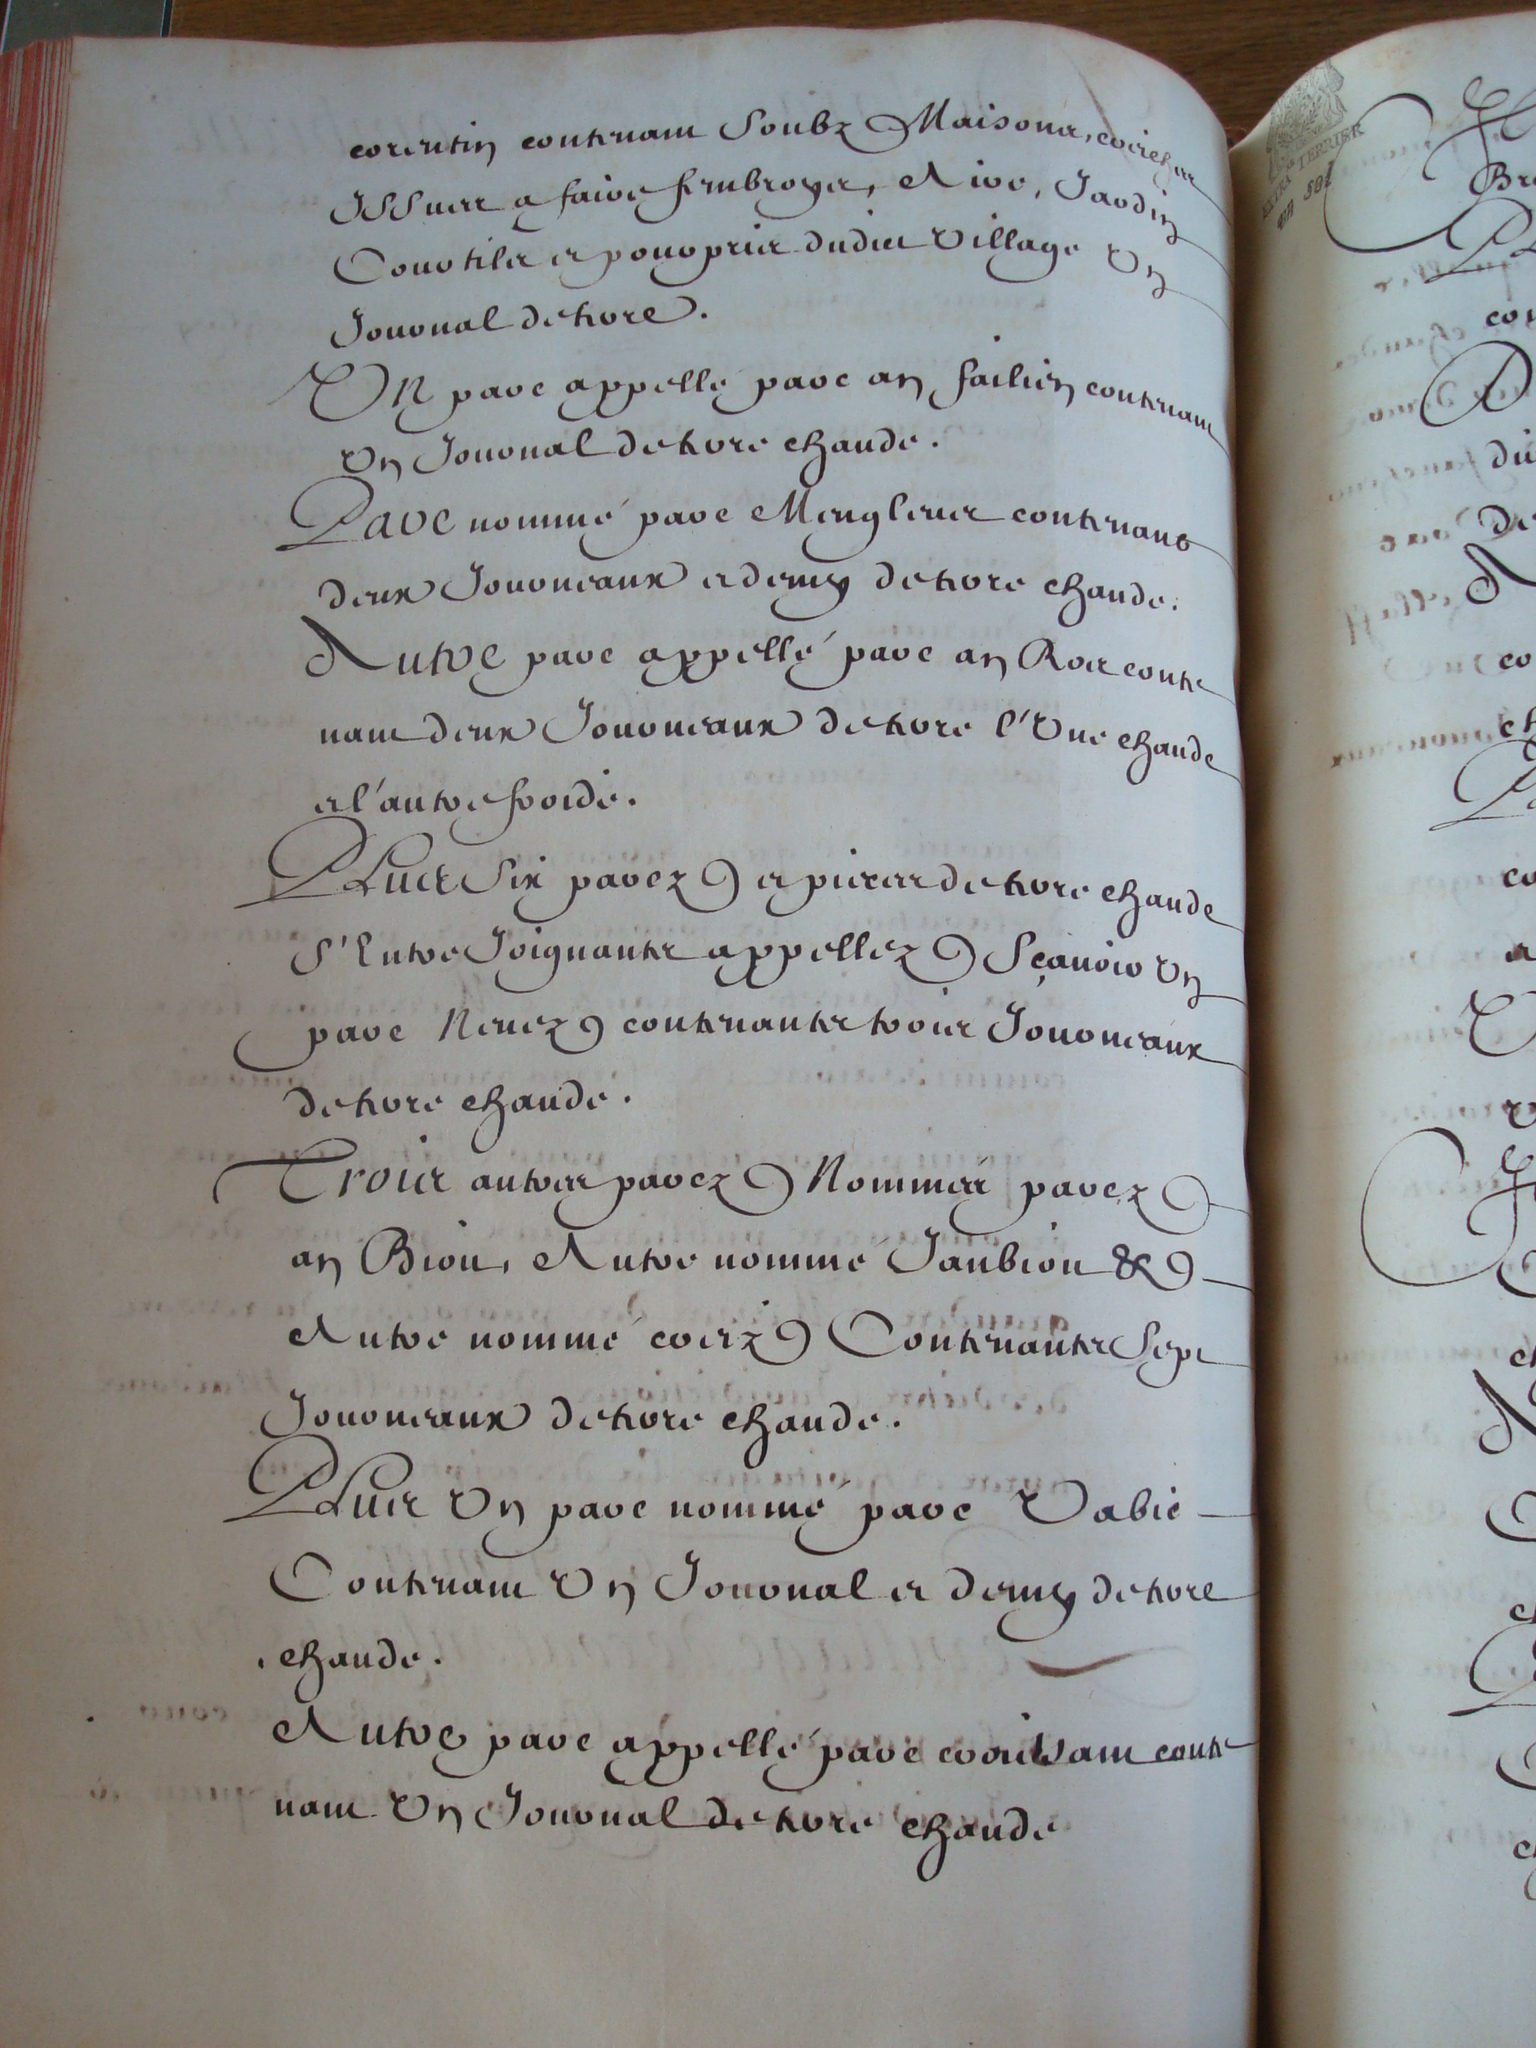 corentin contenant Soubz Maisons, creches
Issues a faire fembroyer, Aire, Jardin
Courtils et pourpris dudict Village Un
Journal de terre.
UN parc appellé parc an failien contenant
Un Journal de terre chaude.
Parc nommé parc Menglenes contenant
deux Journeaux et demy de terre chaude.
Autre parc appellé parc an Roz conte
nant deux Journeaux de terre l'Une chaude
et l'autre froide.
PLus Six parcz et pieces de terre chaude
s'Entre Joignants appellez Sçavoir Un
parc Nevez contenants trois Journeaux
de terre chaude.
Trois autres parcz Nommés parcz
an Brou, Autre nommé Jaubion &
Autre nommé Contenants Sept
Journeaux de terre chaude.
PLus Un parc nommé parc Vabie
Contenant Un Journal et demy de terre
chaude.
Autre parc appellé parc conte
nant Un Journal de terre chaude
EXTRA TERRIER
SOL
co
co